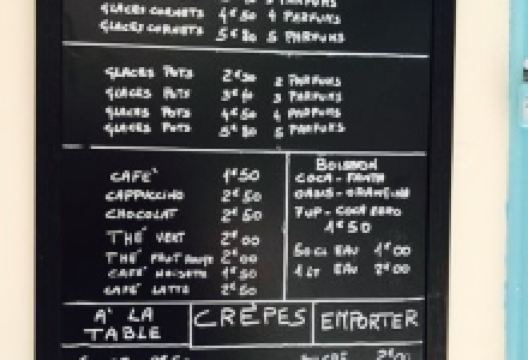 GLACES CORNETS 4€50 4 PARFUMS
GLACES CORNETS 5€80 5 PARFUMS
GLACES POTS 2€50 2 PARFUMS
GLACES POTS 3 PARFUMS
GLACES POTS 4€50 4 PARFUMS
GLACES POTS 5€80 5 PARFUMS
CAFE' 1€50
CAPPUCCINO 2€50
CHOCOLAT 2€50
THÉ VERT 2€00
THÉ FRUIT ROUGE 2€00
CAFÉ NOISETTE 1€50
CAFÉ LATTE 2€50
BOISSON
COCA - FANTA
OASIS - ORANGINA
7UP - COCA ZERO
1€50
50 CL EAU 1€00
1 LT EAU 2€00
A' LA TABLE
CRÊPES
EMPORTER
SUCRE 2€00